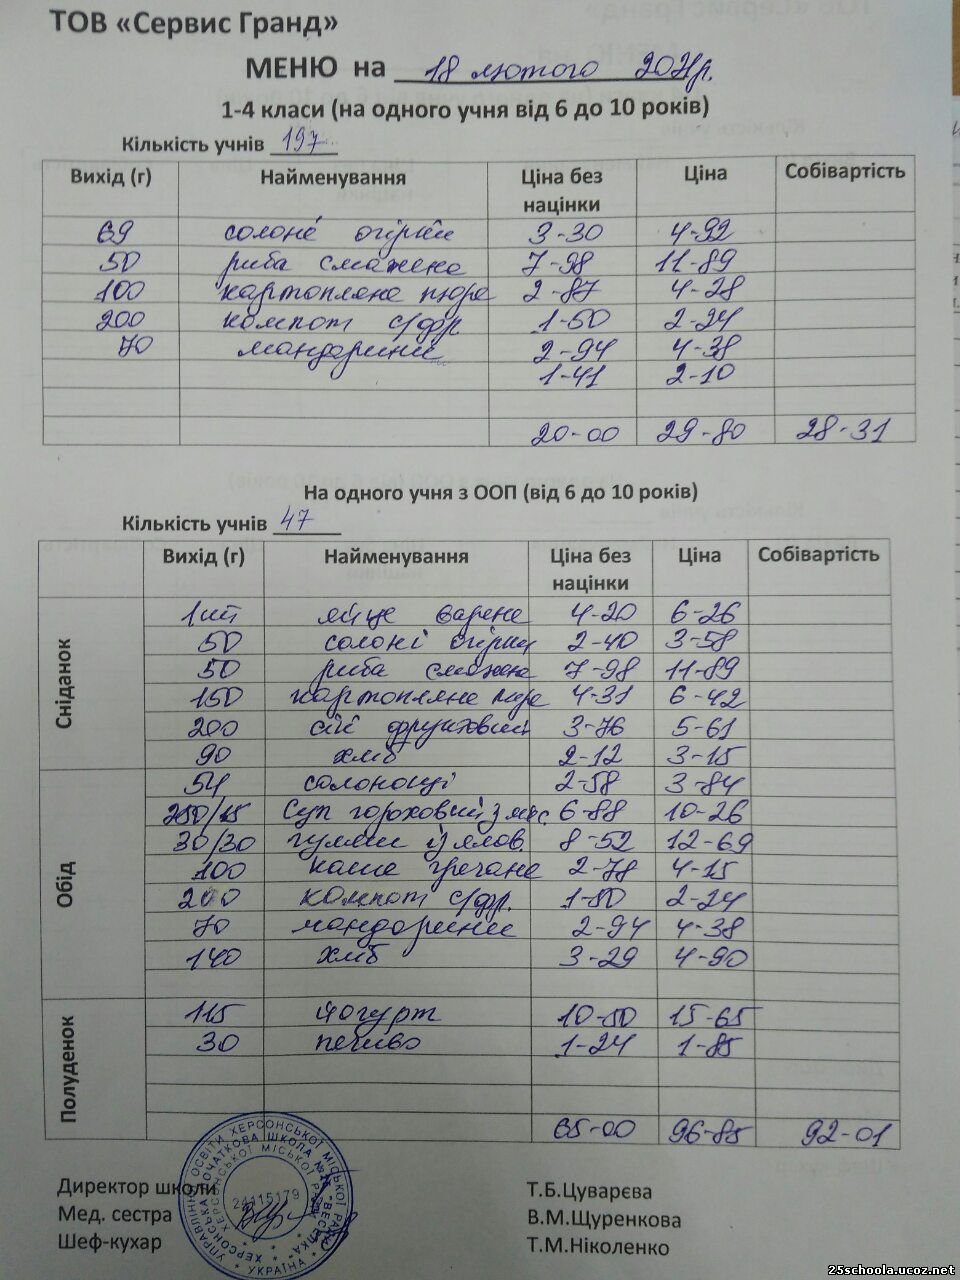 ТОВ «Сервис Гранд»
МЕНЮ на 18 лютого 2021р.
1-4 класи (на одного учня від 6 до 10 років)
Кількість учнів 197
Вихід (г) Найменування Ціна без націнки Ціна Собівартість
69 солоні огірки 3-30 4-92
50 риба смажена 7-98 11-89
100 картопляне пюре 2-87 4-28
200 компот с/фр 1-50 2-24
70 мандарини 2-94 4-38
1-41 2-10
20-00 29-80 28-31
На одного учня з ООП (від 6 до 10 років)
Кількість учнів 47
Вихід (г) Найменування Ціна без націнки Ціна Собівартість
Сніданок
1шт яйце варене 4-20 6-26
50 солоні огірки 2-40 3-58
50 риба смажена 7-98 11-89
150 картопляне пюре 4-31 6-42
200 сік фруктовий 3-76 5-61
90 хліб 2-12 3-15
Обід
54 солонощі 2-58 3-84
250/15 Суп гороховий з мяс. 6-88 10-26
30/30 гуляш із ялов. 8-52 12-69
100 каша гречана 2-78 4-15
200 компот с/фр. 1-50 2-24
70 мандарини 2-94 4-38
140 хліб 3-29 4-90
Полуденок
115 йогурт 10-50 15-65
30 печиво 1-24 1-85
65-00 96-85 92-01
Директор школи Т.Б.Цуварєва
Мед. сестра В.М.Щуренкова
Шеф-кухар Т.М.Ніколенко
24115179
УКРАЇНА
25schoola.ucoz.net